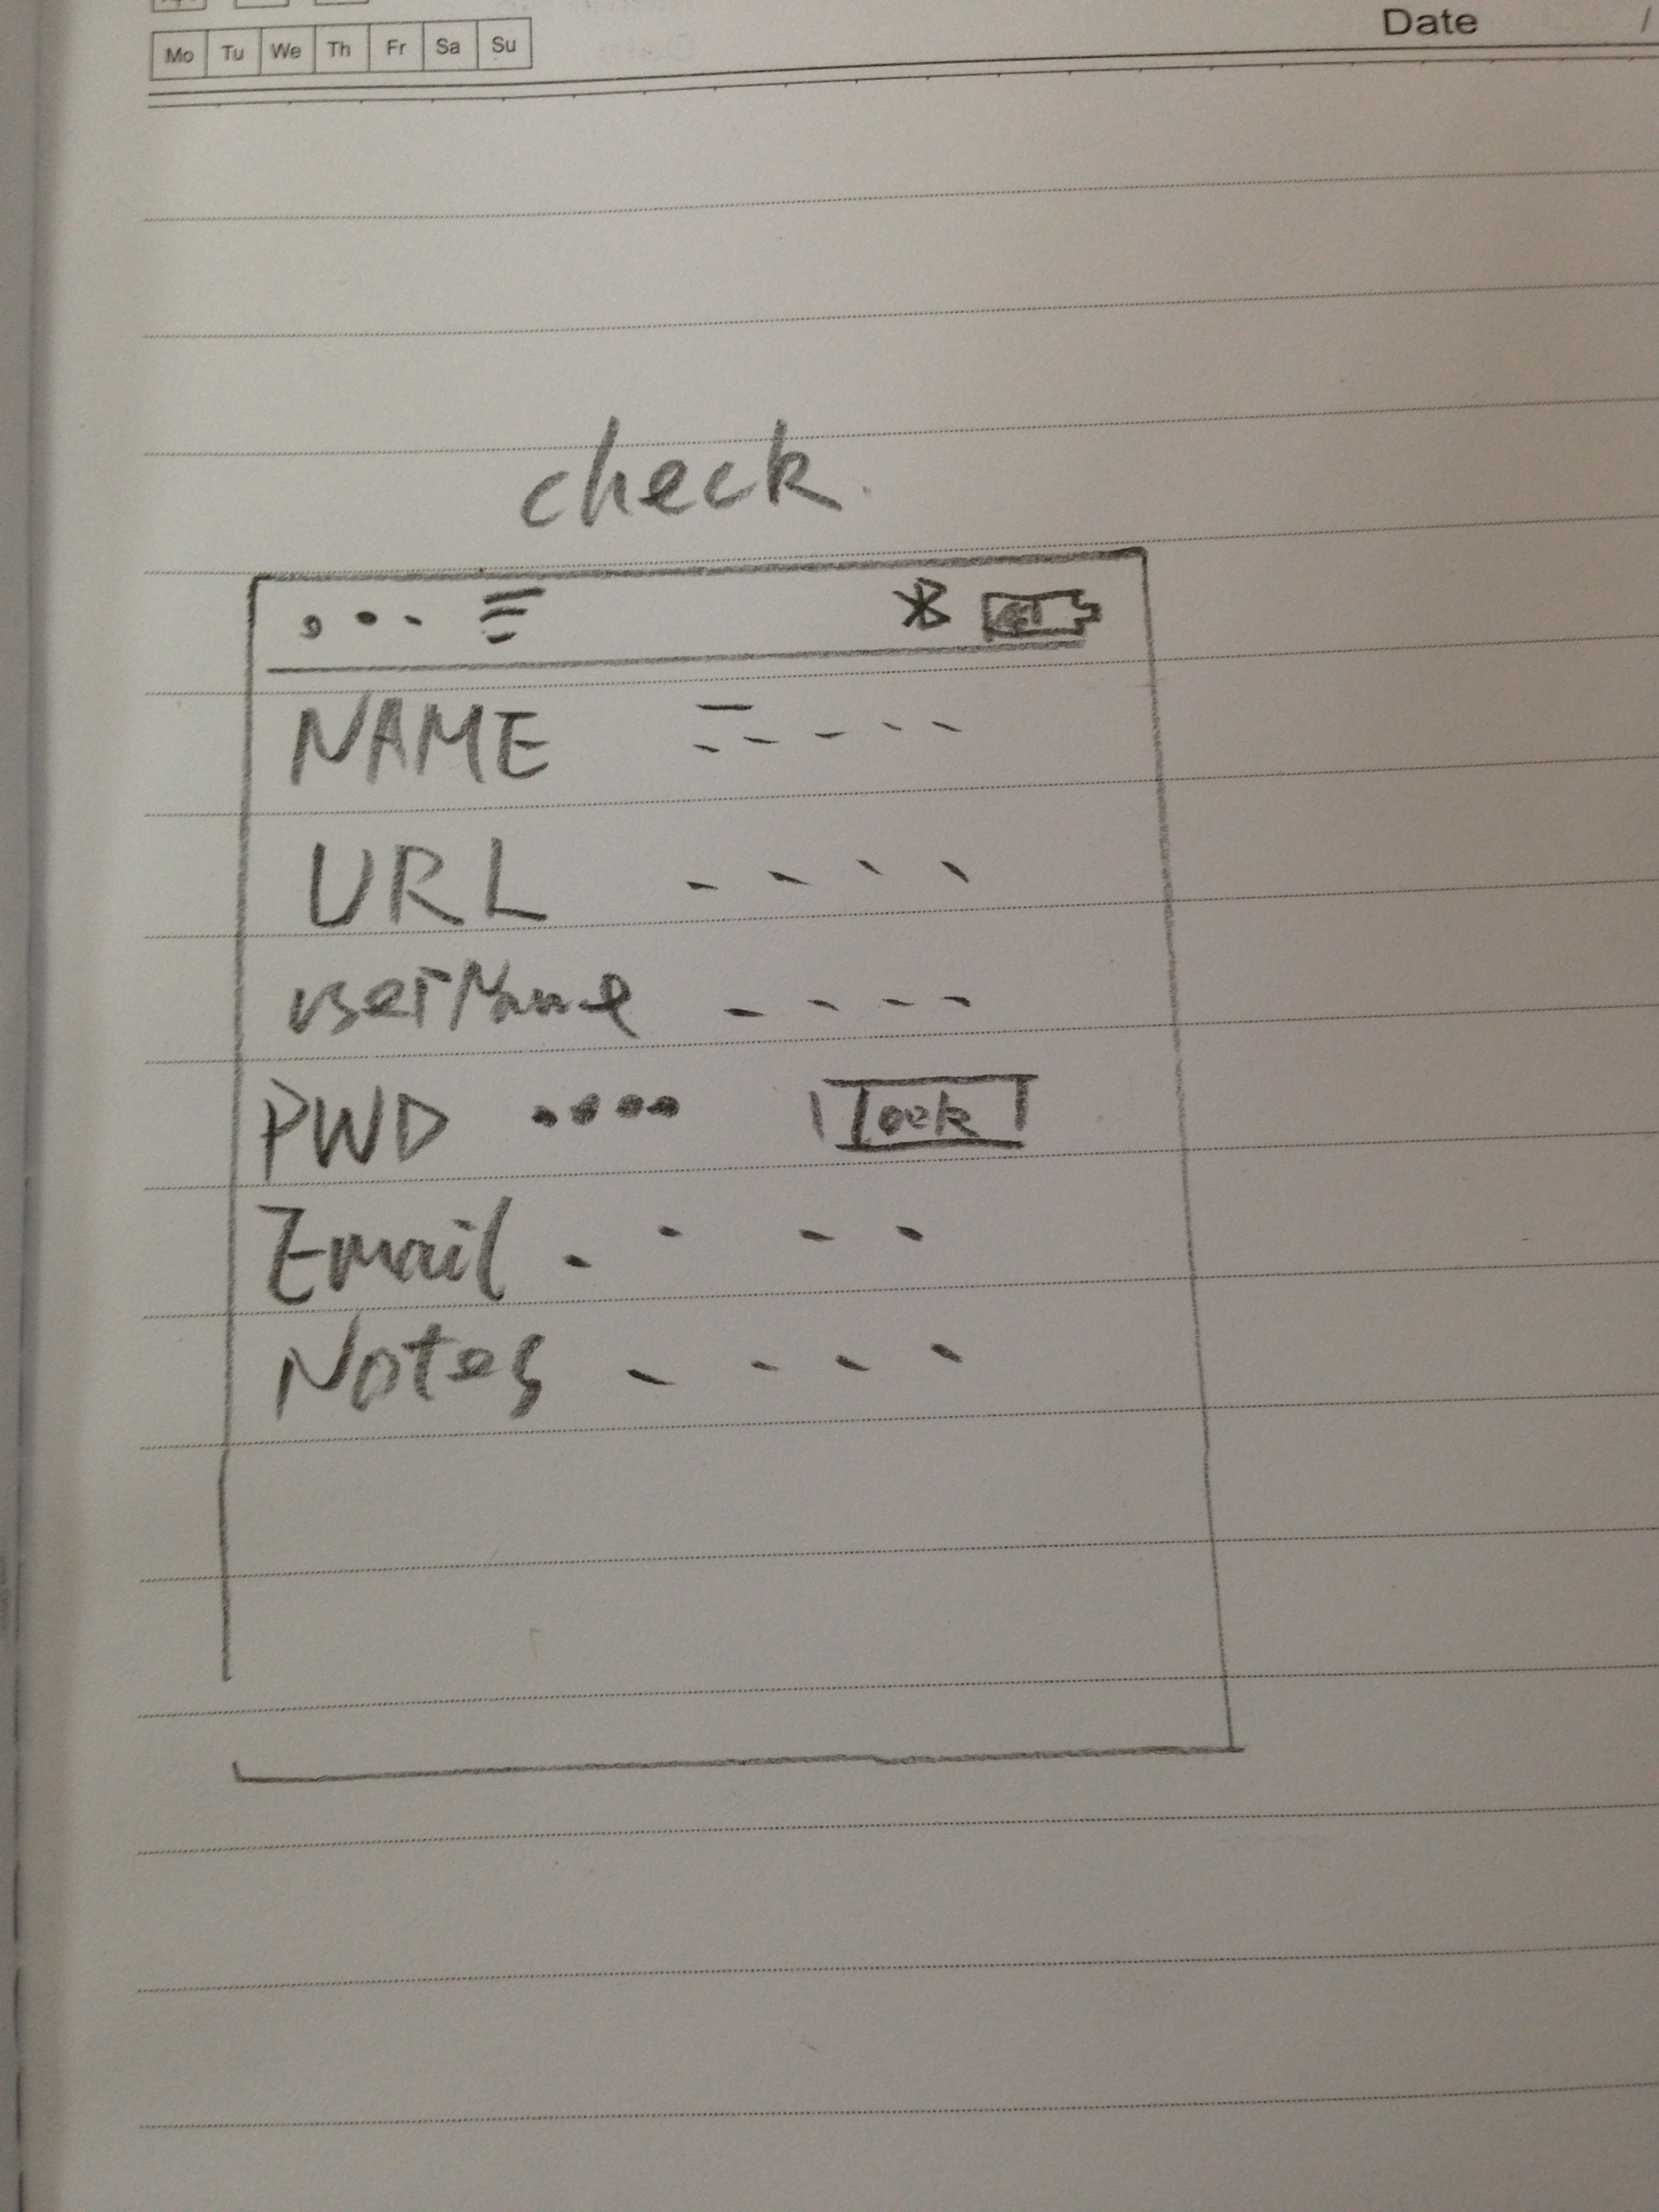 Mo Tu We Th Fr Sa Su
Date /
check.
NAME
URL
userName
PWD
Email
Notes